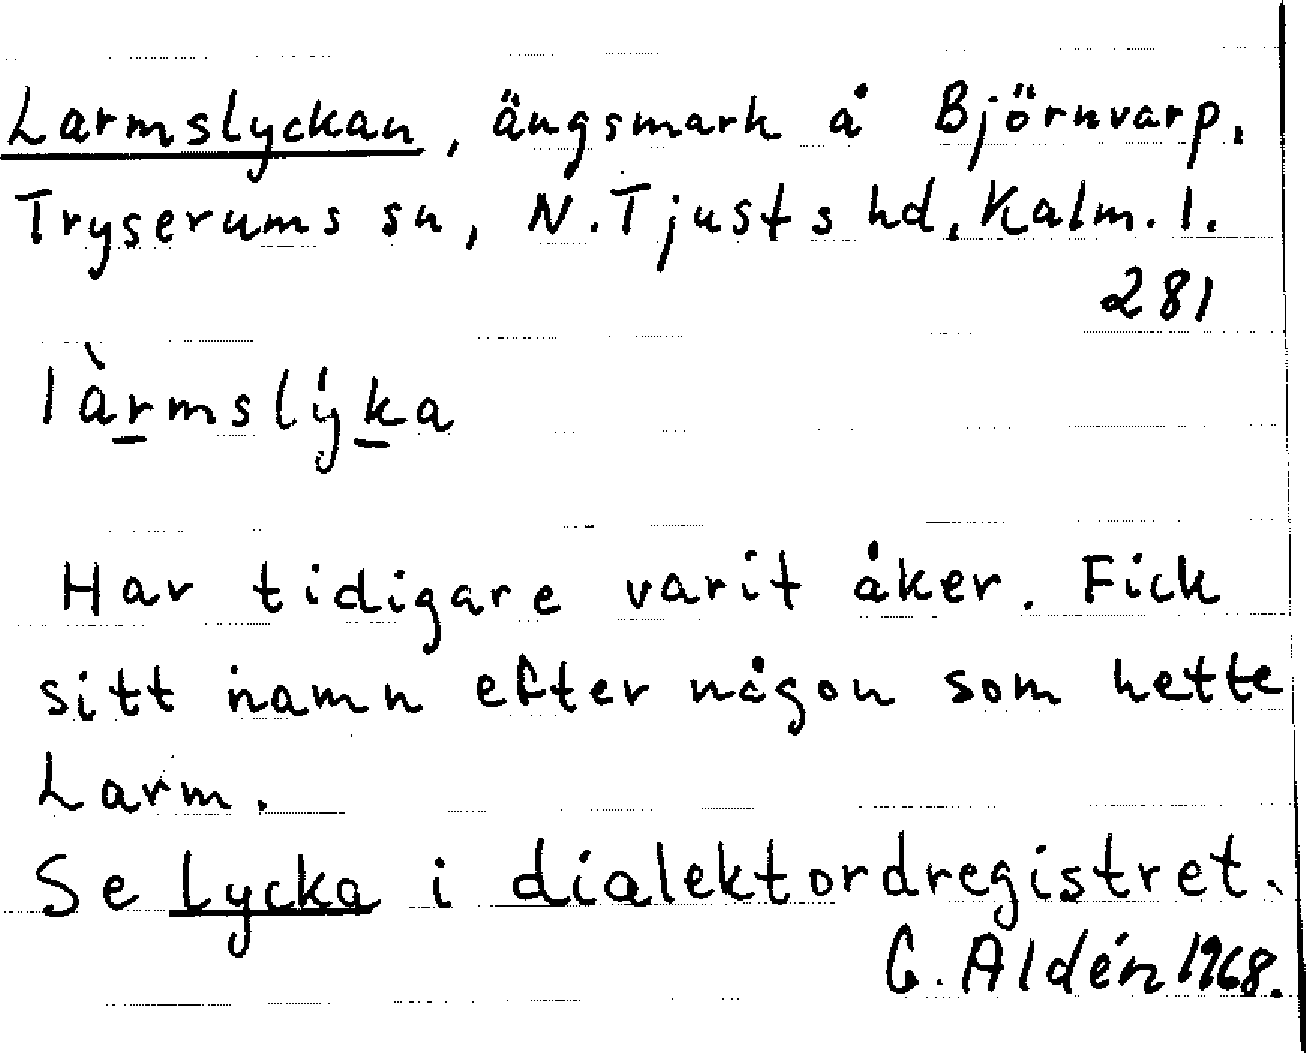 Larmslyckan, ängsmark å Björnvarp,
Tryserums sn, N. Tjusts hd, Kalm. l.
281
làr̲mslýk̲a
Har tidigare varit åker. Fick
sitt namn efter någon som hette
Larm.
Se lycka i dialektordregistret.
G. Aldén 1968.